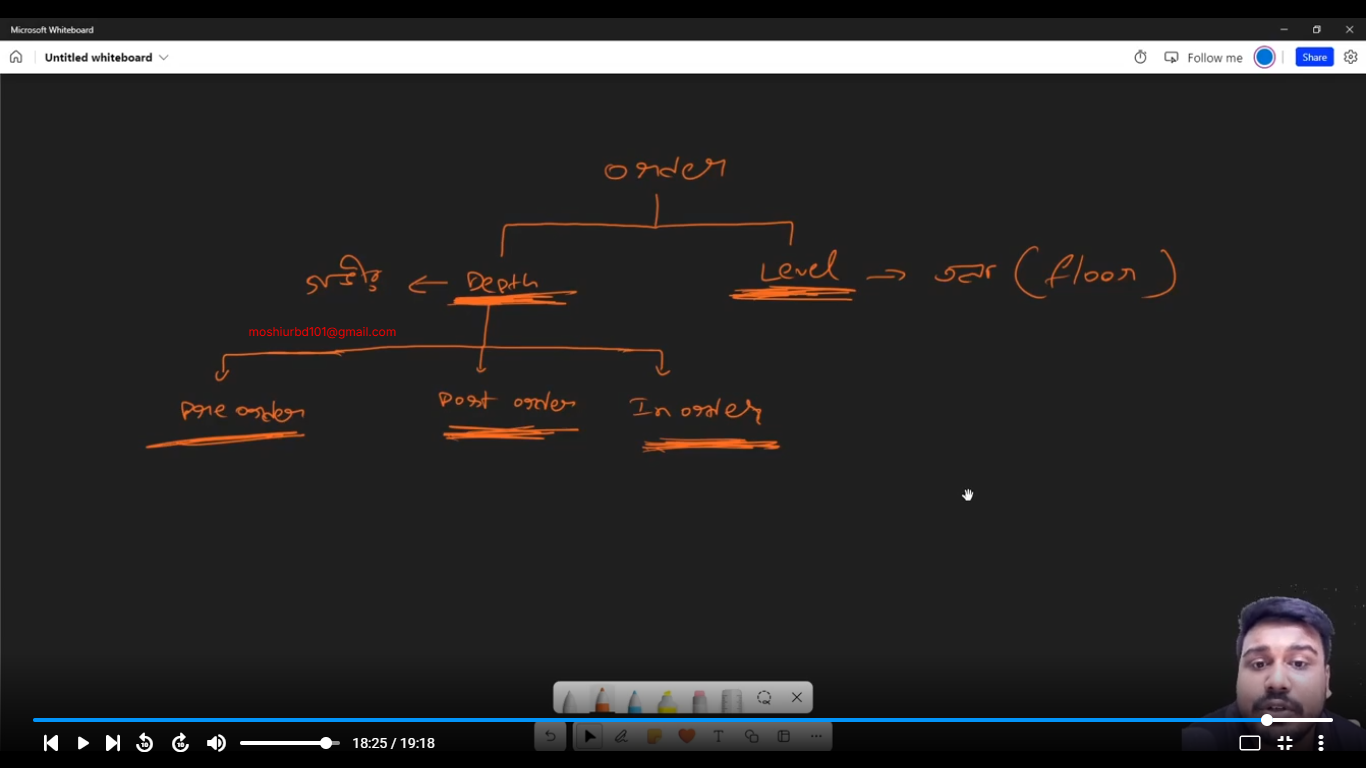 Microsoft Whiteboard
Untitled whiteboard
Follow me
Share
order
গভীর ← Depth
Level → তলা (floor)
moshiurbd101@gmail.com
pre order
post order
In order
10
10
T
18:25 / 19:18